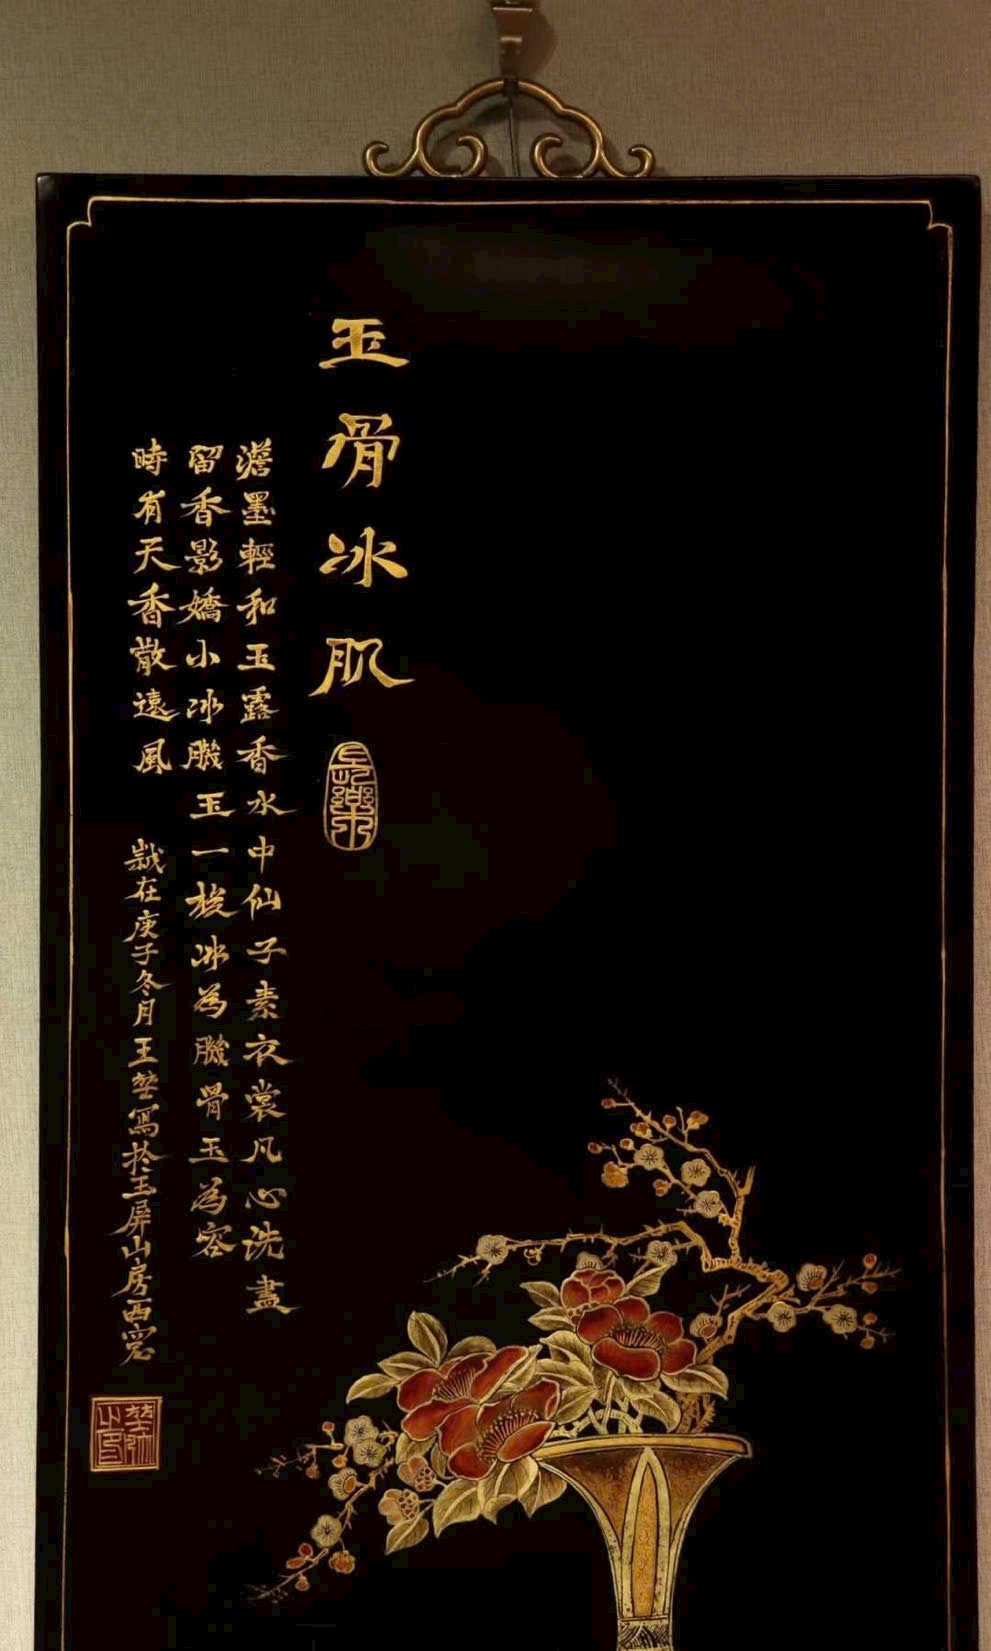 玉骨冰肌
長樂
澹墨輕和玉露香水中仙子素衣裳凡心洗盡
留香影嬌小冰𦠄玉一梭冰為𦠄骨玉為容
時有天香散遠風
歲在庚子冬月王 寫於玉屏山房西窗